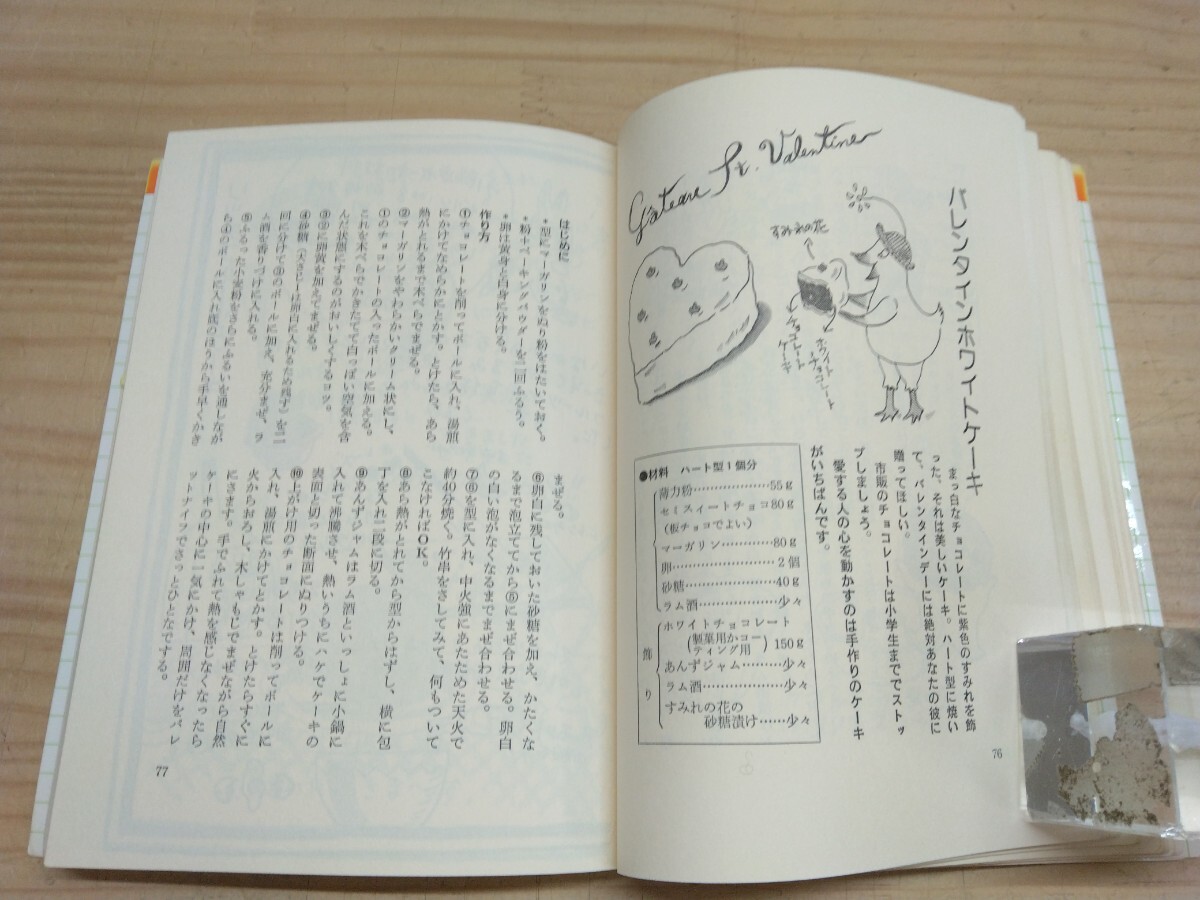 バレンタインホワイトケーキ
Gateau St. Valentine
すみれの花
ホワイト
チョコレート
チョコレート
ケーキ
まっ白なチョコレートに紫色のすみれを飾
った、それは美しいケーキ。ハート型に焼い
て、バレンタインデーには絶対あなたの彼に
贈ってほしい。
市販のチョコレートは小学生まででストッ
プしましょう。
愛する人の心を動かすのは手作りのケーキ
がいちばんです。
●材料 ハート型1個分
薄力粉………………55g
セミスイートチョコ80g
(板チョコでよい)
マーガリン…………80g
卵……………………2個
砂糖…………………40g
ラム酒………………少々
飾り
ホワイトチョコレート
(製菓用かコーティング用)150g
あんずジャム………少々
ラム酒………………少々
すみれの花の
砂糖漬け……少々
76
はじめに
*型にマーガリンをぬり粉をはたいておく。
*粉+ベーキングパウダーを二回ふるう。
*卵は黄身と白身に分ける。
作り方
①チョコレートを削ってボールに入れ、湯煎
にかけてなめらかにとかす。とけたら、あら
熱がとれるまで木べらでまぜる。
②マーガリンをやわらかいクリーム状にし、
①のチョコレートの入ったボールに加える。
これを木べらでかきたてて白っぽい空気を含
んだ状態にするのがおいしくするコツ。
③②に卵黄を加えてまぜる。
④砂糖(大さじ一は卵白に入れるため残す)を二
回に分けて③のボールに加え、充分まぜ、ラ
ム酒を香りづけに入れる。
⑤ふるった小麦粉をさらにふるいを通しなが
ら④のボールに入れ底のほうから手早くかき
まぜる。
⑥卵白に残しておいた砂糖を加え、かたくな
るまで泡立ててから⑤にまぜ合わせる。卵白
の白い泡がなくなるまでまぜ合わせる。
⑦⑥を型に入れ、中火強にあたためた天火で
約40分焼く。竹串をさしてみて、何もついて
こなければOK。
⑧あら熱がとれてから型からはずし、横に包
丁を入れ二段に切る。
⑨あんずジャムはラム酒といっしょに小鍋に
入れて沸騰させ、熱いうちにハケでケーキの
表面と切った断面にぬりつける。
⑩上がけ用のチョコレートは削ってボールに
入れ、湯煎にかけてとかす。とけたらすぐに
火からおろし、木しゃもじでまぜながら自然
にさます。手でふれて熱を感じなくなったら
ケーキの中心に一気にかけ、周囲だけをパレ
ットナイフでさっとひとなでする。
77